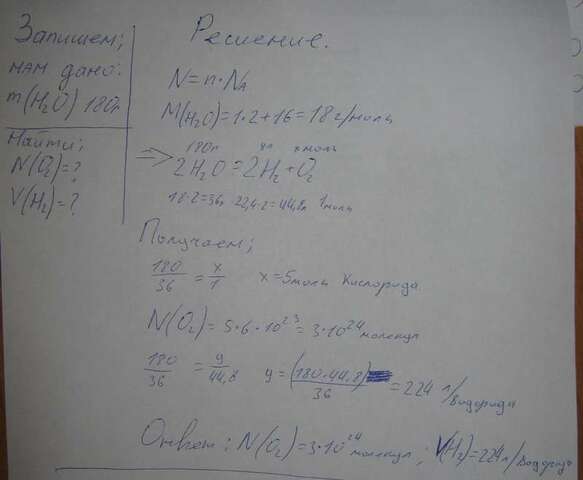 Запишем;
нам дано:
m(H₂O) 180г
Найти;
N(O₂)=?
V(H₂)=?
Решение.
N=n·Nᴀ
M(H₂O)=1·2+16=18г/моль
180г yл xмоль
=> 2H₂O=2H₂+O₂
18·2=36г 22,4·2=44,8л 1моль
Получаем;
180/36 = x/1 x=5моль Кислорода
N(O₂)=5·6·10²³=3·10²⁴ молекул
180/36 = y/44,8 y=(180·44,8)/36 =224 л/водорода
Ответ; N(O₂)=3·10²⁴ молекул; V(H₂)=224л/водорода